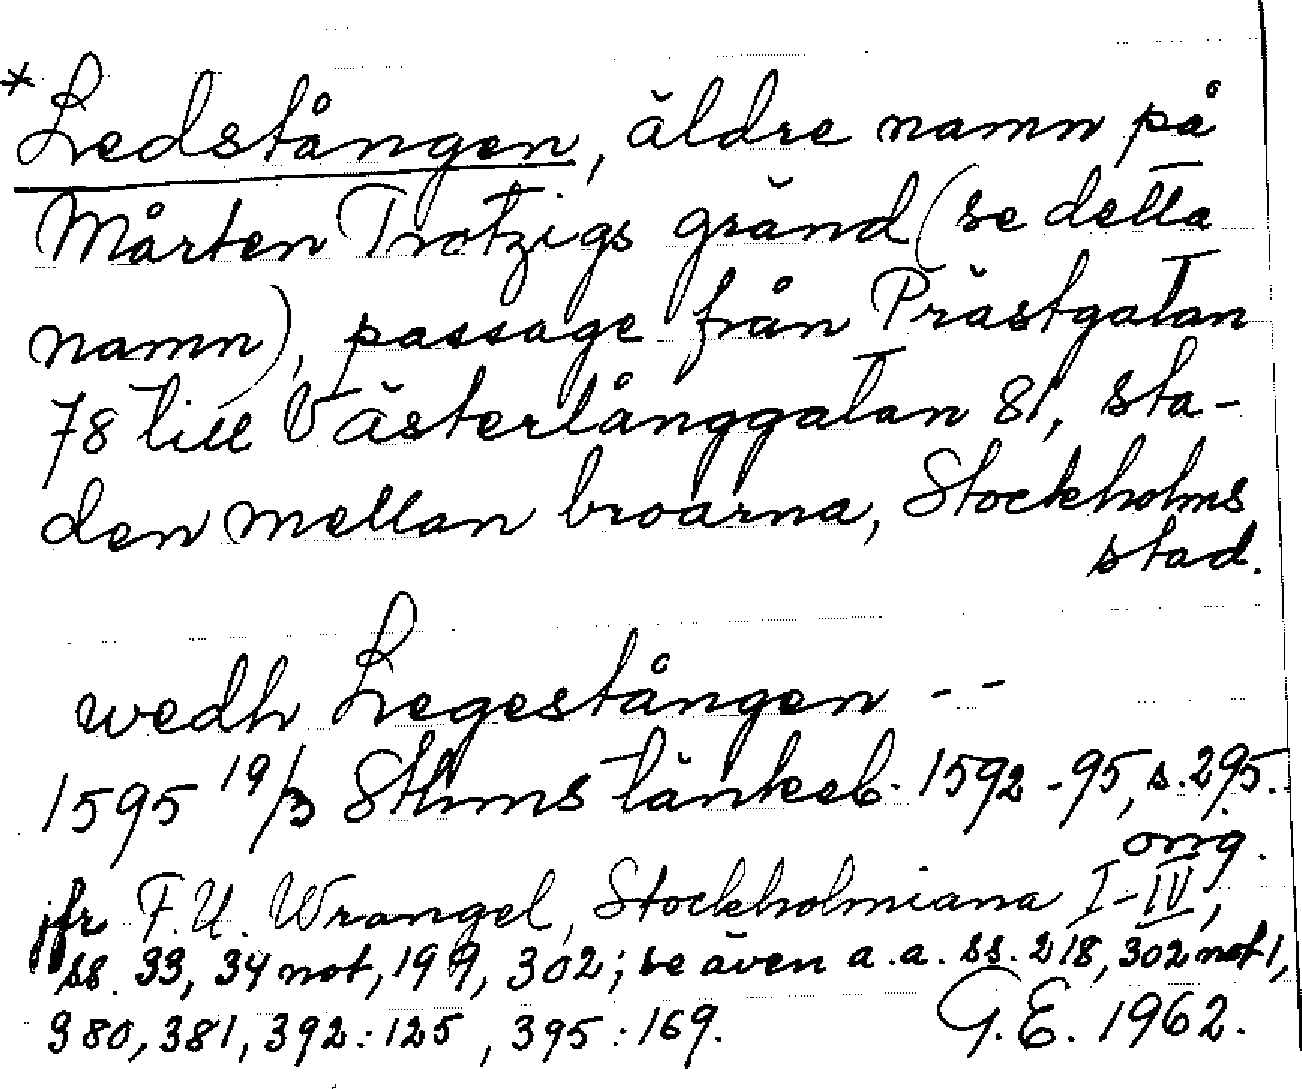 *Ledstången, äldre namn på
Mårten Trotzigs gränd (se detta
namn), passage från Prästgatan
78 till Västerlånggatan 81, sta-
den mellan broarna, Stockholms
stad.
wedh Legestången --
1595 19/3 Sthms tänkeb. 1592-95, s. 295.
orig.
jfr F.U. Wrangel, Stockholmiana I-IV,
ss. 33, 34 not, 199, 302; se även a.a. ss. 218, 302 not 1,
380, 381, 392:125, 395:169. G.E. 1962.